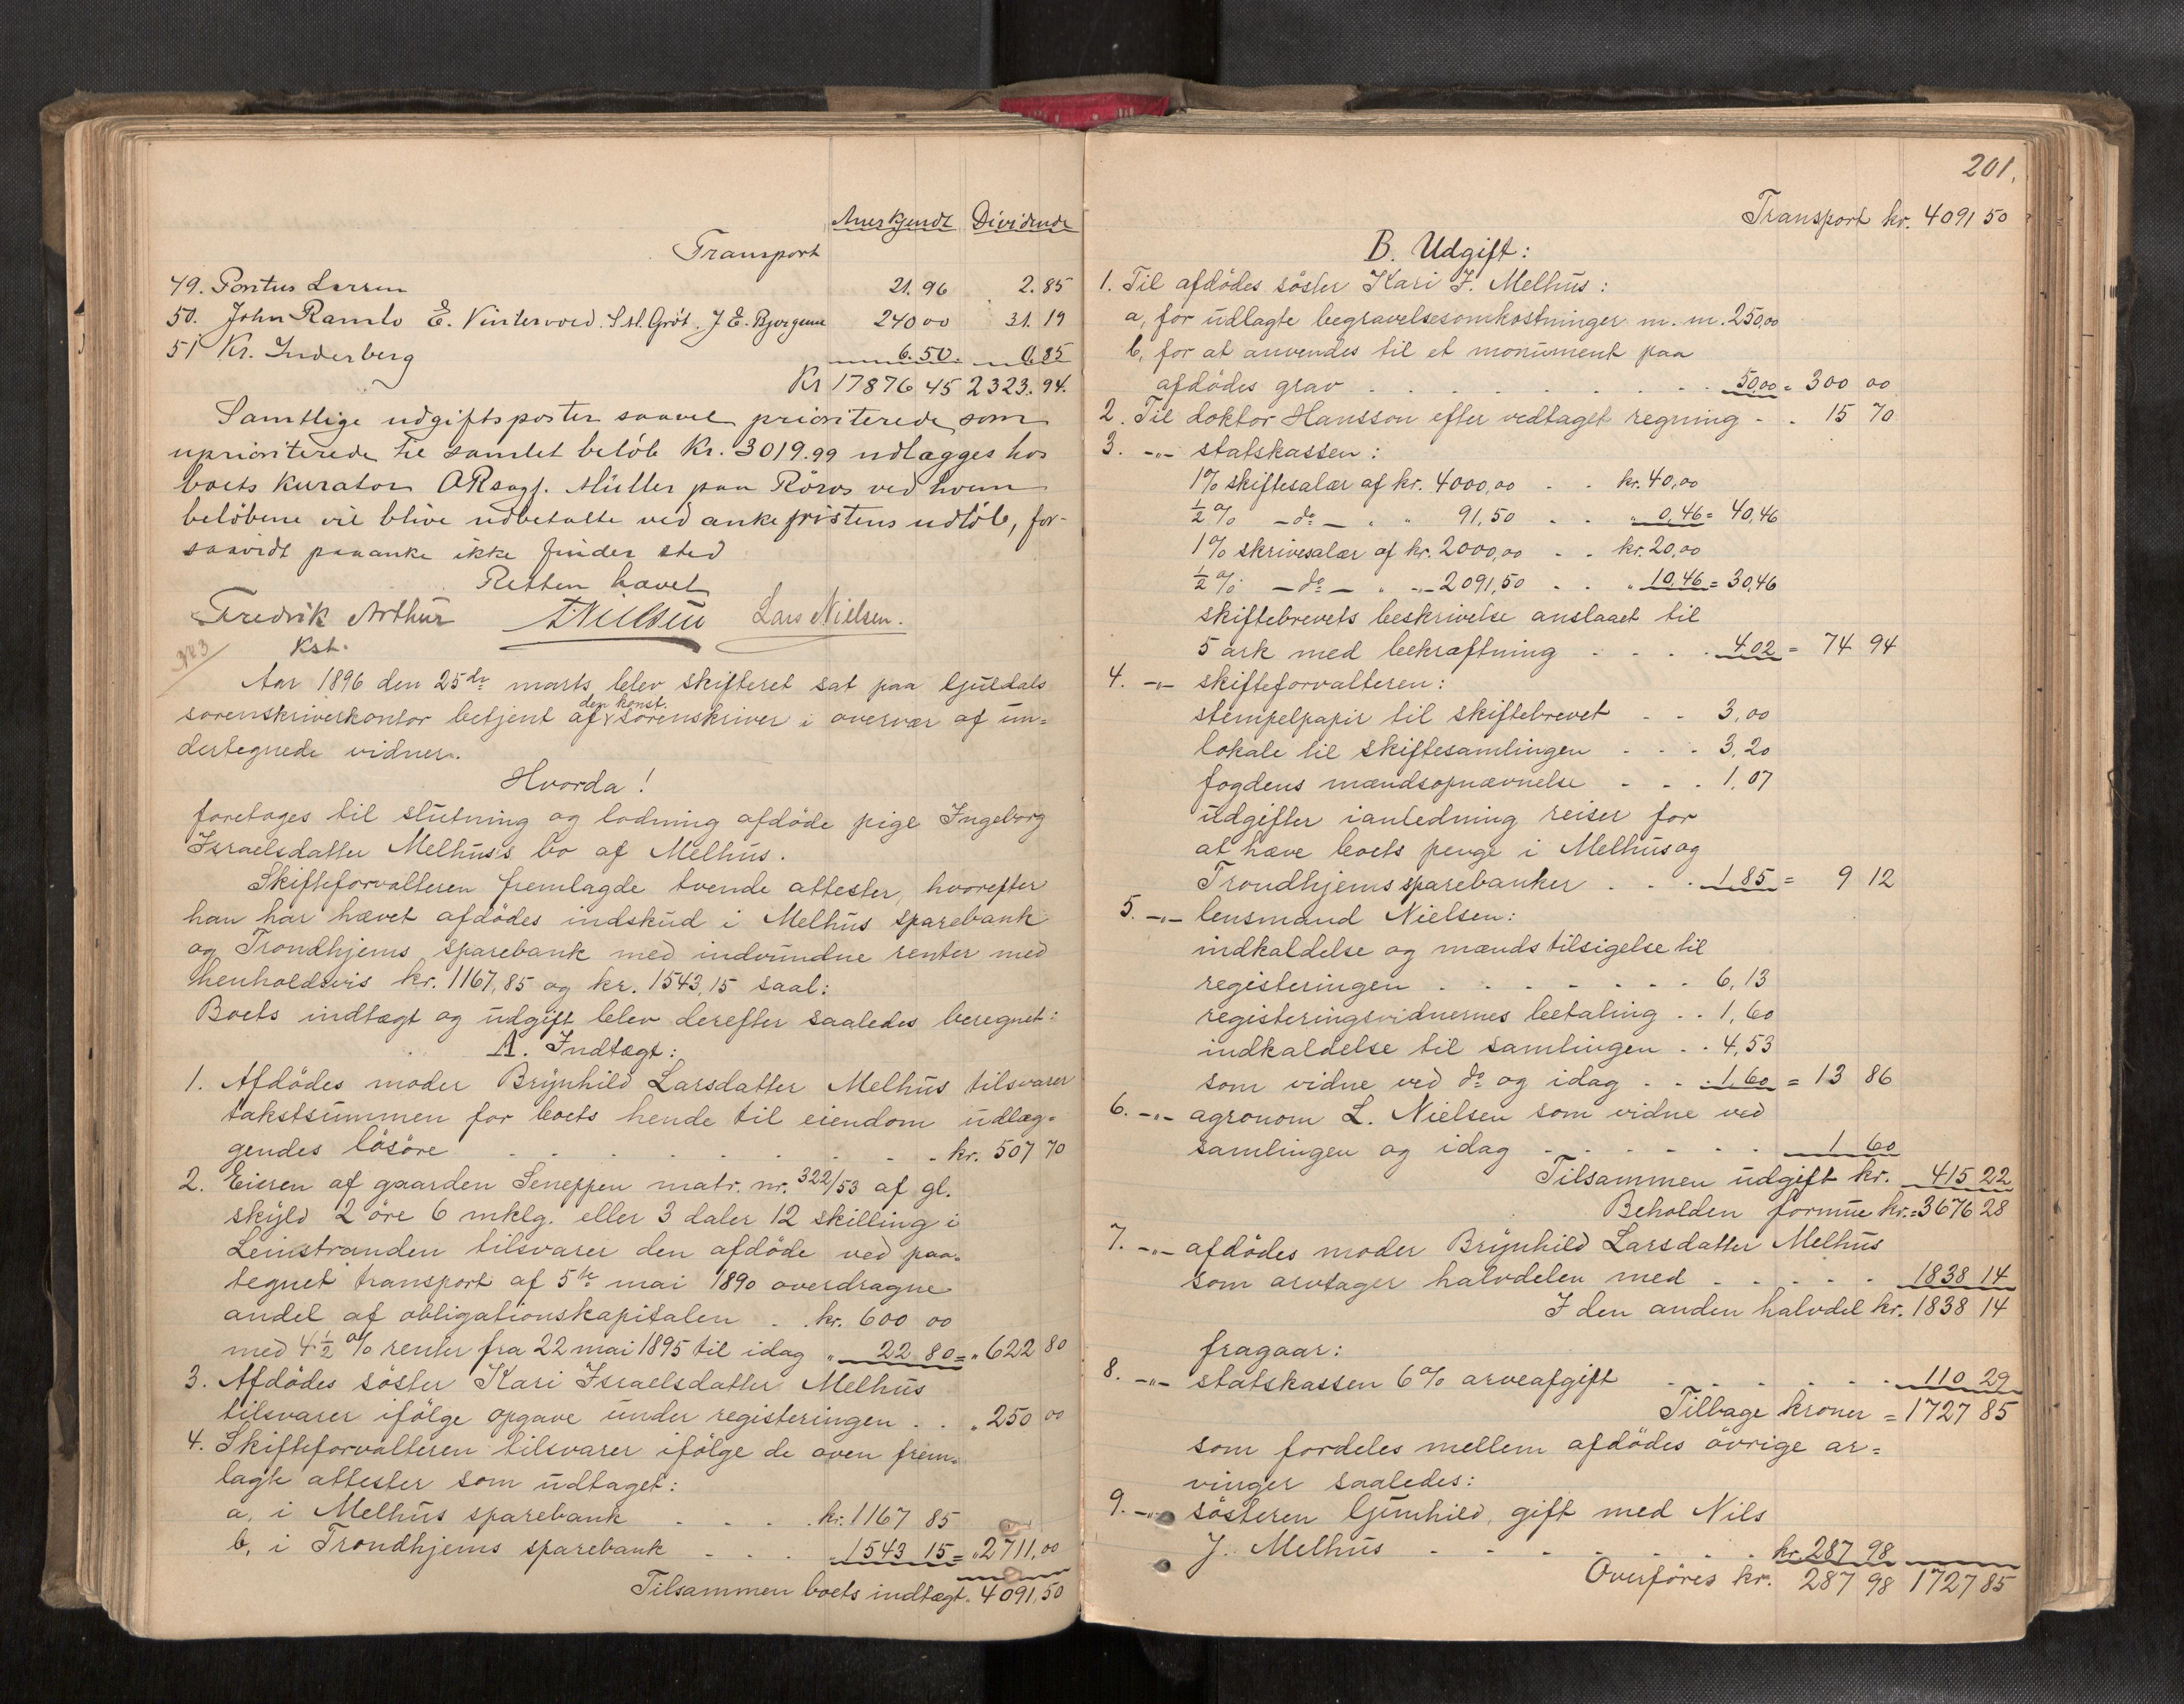 Anerkjendt Dividende
Transport
49. Pontus Larsen 21.96 2.85
50. John Ramlo E. Vintervold. S. st. Gröt. J. E. Bjørgum 240 00 31.19
51 Kr. Inderberg 6.50. 0.85
Kr 17876 45 2323.94.
Samtlige udgiftsposter saavel prioriterede som
uprioriterede til samlet beløb Kr. 3019.99 udlægges hos
boets kurator ORsagf. Müller paa Röros ved hvem
beløbene vil blive udbetalte ved ankefristens udløb, for-
saavidt paaanke ikke finder sted
Retten hævet
Fredrik Arthur Nielsen Lars Nielsen.
Kst.
Aar 1896 den 25de marts blev skifteret sat paa Guldals
sorenskriverkontor betjent af den konst. sorenskriver i overvær af un=
dertegnede vidner.
Hvorda!
foretoges til slutning og lodning afdöde pige Ingeborg
Israelsdatter Melhus's bo af Melhus.
Skifteforvalteren fremlagde tvende attester, hvorefter
han har hævet afdödes indskud i Melhus sparebank
og Trondhjems sparebank med indvundne renter med
henholdsvis kr. 1167,85 og kr. 1543,15 saal:
Boets indtægt og udgift blev derefter saaledes beregnet:
A. Indtægt:
1. Afdödes moder Brynhild Larsdatter Melhus tilsvarer
takstsummen for boets hende til eiendom udlæg=
gendes lösöre . . . . . . . kr. 507 70
2. Eieren af gaarden Seneppen matr. nr. 322/53 af gl.
skyld 2 öre 6 mklg. eller 3 daler 12 skilling i
Leinstranden tilsvarer den afdöde ved paa=
tegnet transport af 5te mai 1890 overdragne
andel af obligationskapitalen . . kr. 600 00
med 4 1/2 % renter fra 22 mai 1895 til idag " 22 80 = " 622 80
3. Afdödes söster Kari Israelsdatter Melhus
tilsvarer ifölge opgave under registeringen . . " 250 00
4. Skifteforvalteren tilsvarer ifölge de oven frem=
lagte attester som udtaget:
a, i Melhus sparebank . . . . kr. 1167 85
b, i Trondhjems sparebank . . . " 1543 15 = " 2711,00
Tilsammen boets indtægt " 4091,50
201.
Transport kr. 4091 50
B. Udgift:
1. Til afdödes söster Kari I. Melhus:
a, for udlagte begravelsesomkostninger m. m. 250,00
b, for at anvendes til et monument paa
afdödes grav . . . . . . . . 50,00 = 300 00
2. Til doktor Hansson efter vedtaget regning - . 15 70
3. -"- statskassen:
1 % skiftesalær af kr. 4000,00 . . kr. 40,00
1/2 % - do - " " 91,50 . . " 0,46 = 40,46
1 % skrivesalær af kr. 2000,00 . . kr. 20,00
1/2 % - do - " -"- 2091,50 . . " 10,46 = 30,46
skiftebrevets beskrivelse anslaaet til
5 ark med bekræftning . . . . 4.02 = 74 94
4. -"- skifteforvalteren:
stempelpapir til skiftebrevet . . 3,00
lokale til skiftesamlingen . . . 3,20
fogdens mændsopnævnelse . . . 1,07
udgifter ianledning reiser for
at hæve boets penge i Melhus og
Trondhjems sparebanker . . . 1,85 = 9 12
5. -"- lensmand Nielsen:
indkaldelse og mændstilsigelse til
registeringen . . . . . . . 6,13
registeringsvidnernes betaling . . 1,60
indkaldelse til samlingen . . 4,53
som vidne ved do og idag . . . 1,60 = 13 86
6. -"- agronom L. Nielsen som vidne ved
samlingen og idag . . . . . . 1 60
Tilsammen udgift kr. 415 22
Beholden formue kr. = 3676 28
7. -"- afdödes moder Brynhild Larsdatter Melhus
som arvtager halvdelen med . . . . . 1838 14
I den anden halvdel kr. 1838 14
fragaar:
8. -"- statskassen 6 % arveafgift . . . . . 110 29
Tilbage kroner = 1727 85
som fordeles mellem afdödes övrige ar=
vinger saaledes:
9. -"- sösteren Gunhild, gift med Nils
J. Melhus . . . . . . . kr. 287 98
Overföres kr. 287 98 1727 85